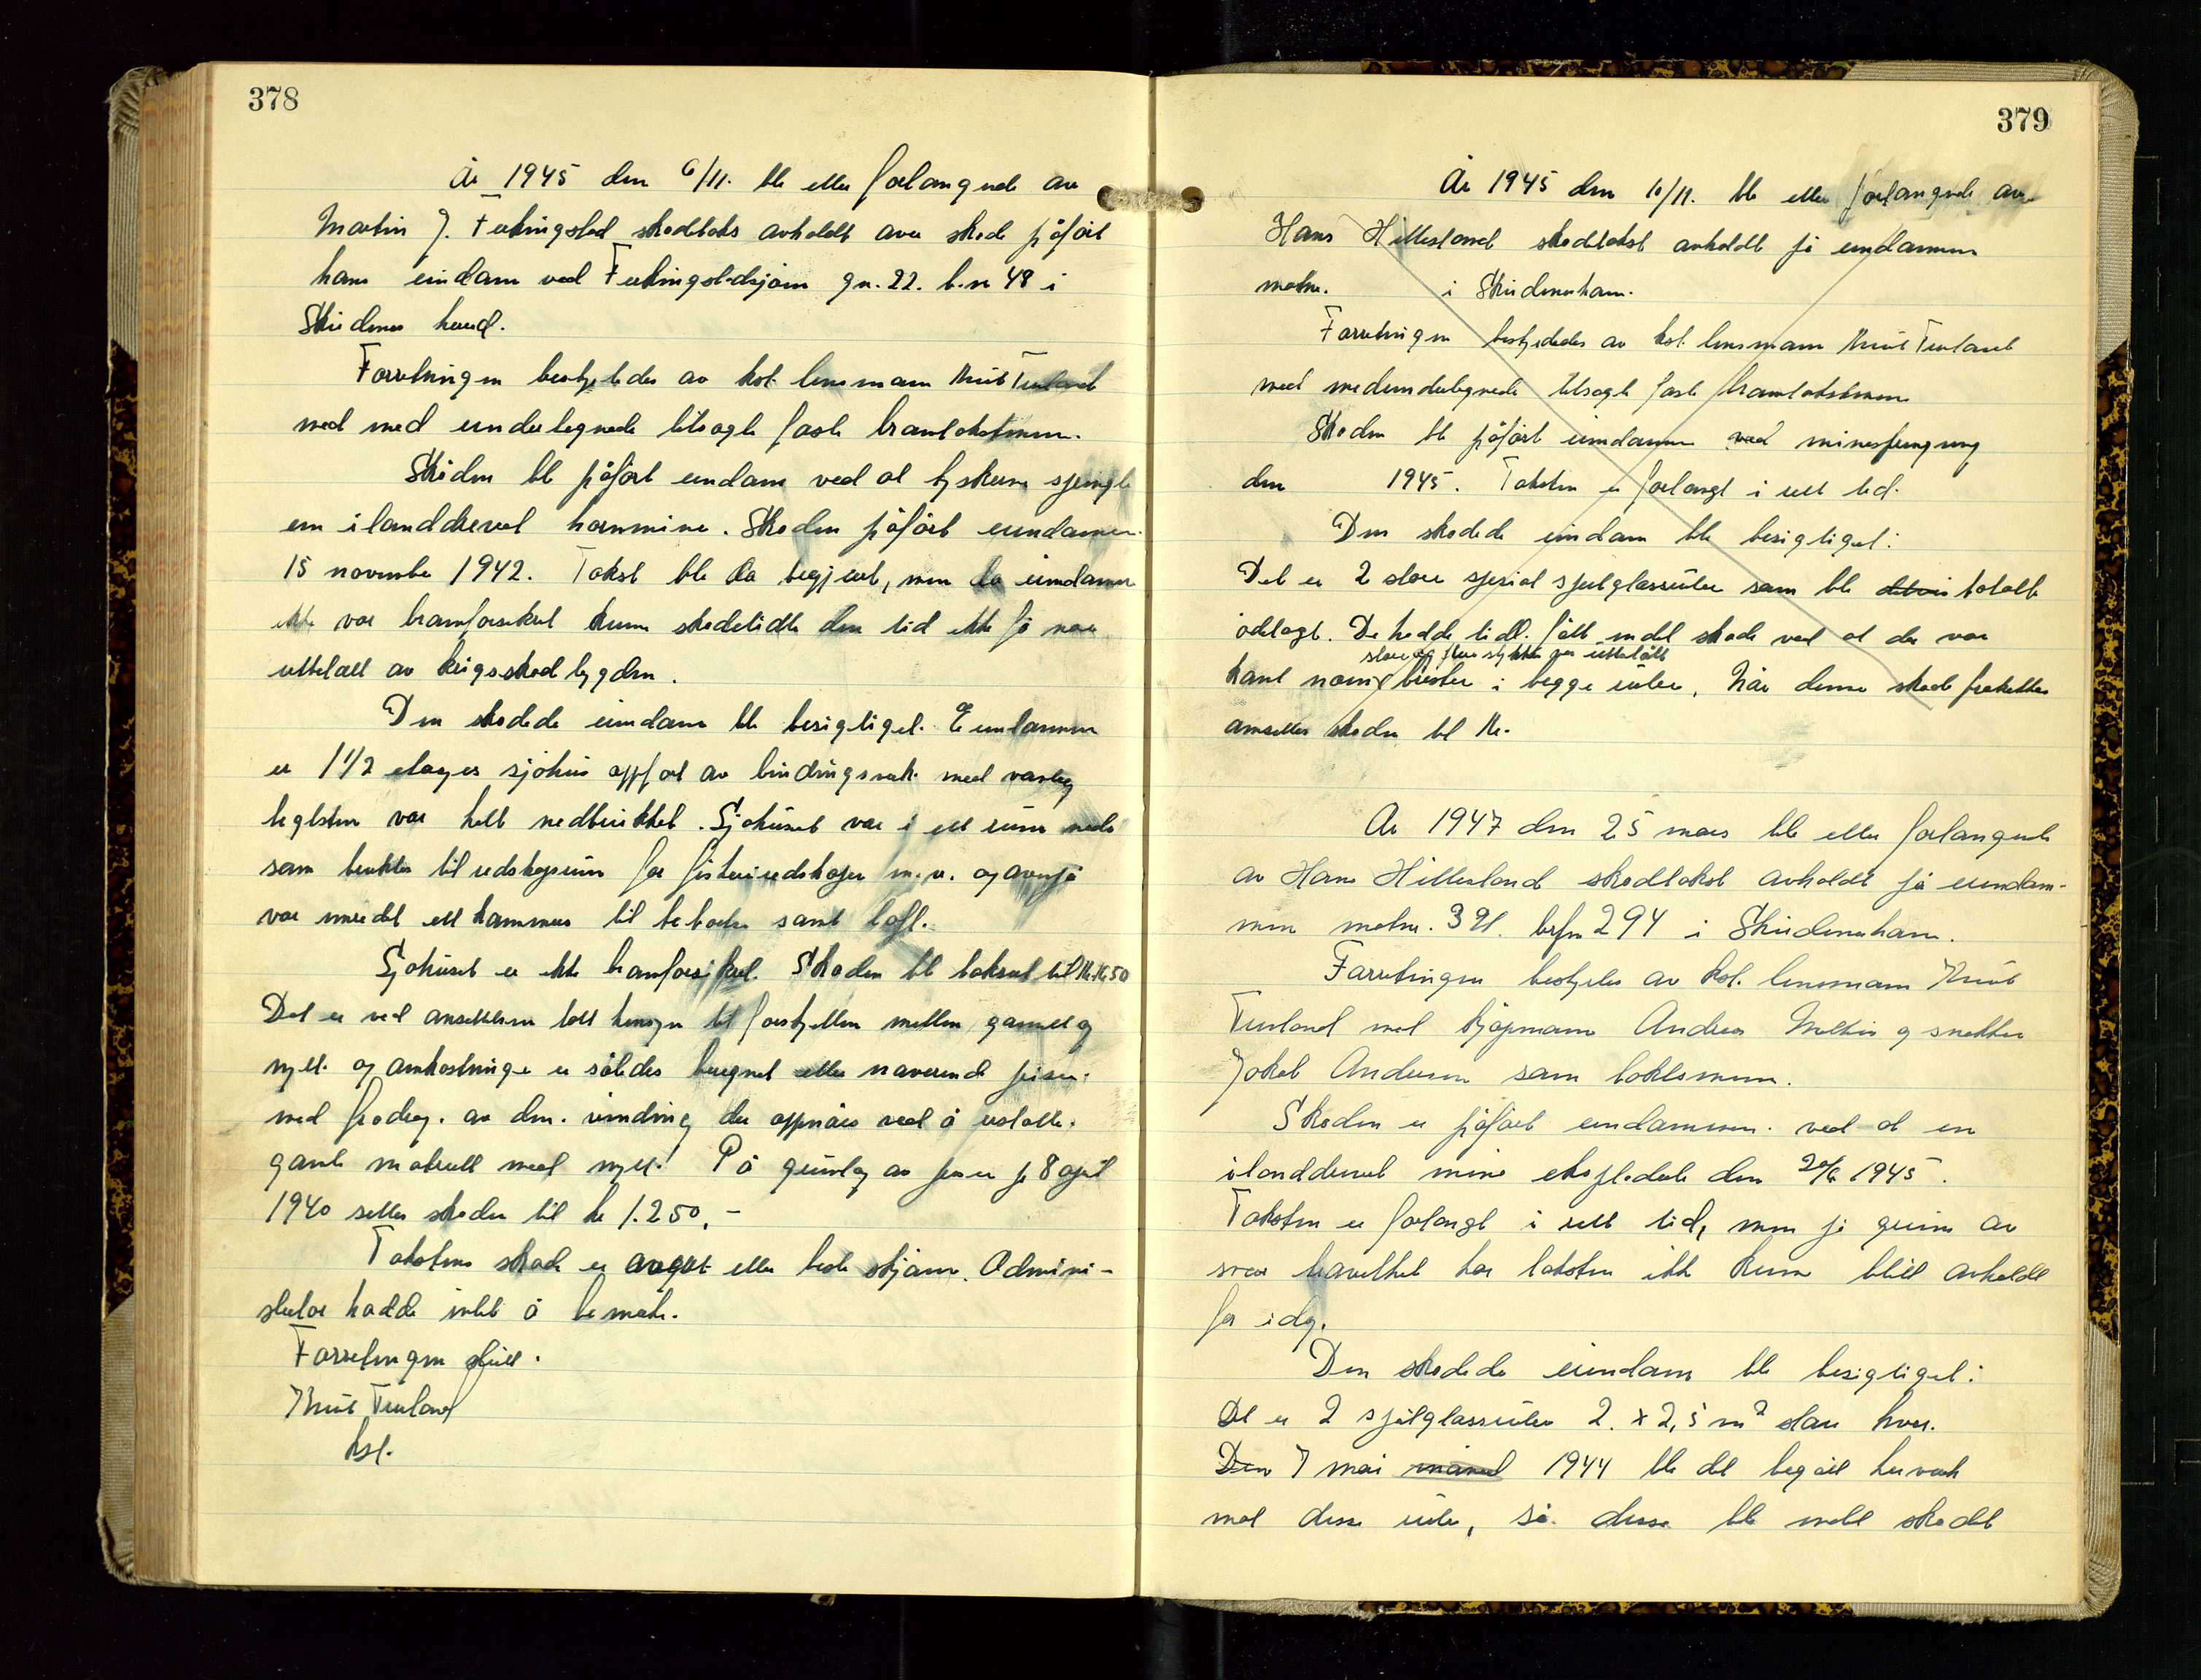 378
År 1945 den 6/11. ble etter forlangende av
Martin J. Ferkingstad skadetakst avholdt over skade påført
hans eiendom ved Ferkingstadsjøen gn. 22. b.nr 48 i
Skudenes herred.
Forretningen bestyrtes av kst. lensmann Knut Tenland
med med undertegnede tilsagte faste branntakstmenn.
Skaden ble påført eiendom ved at tyskerne sprengte
en ilanddrevet hornmine. Skaden påført eiendommen
15 november 1942. Takst ble da begjært, men da eiendommen
ikke var brannforsikret kunne skadelidte den tid ikke få noe
utbetalt av krigsskadetrygden.
Den skadede eiendom ble besigtiget. Eiendommen
er 1 1/2 etasjes sjøhus oppført av bindingsverk med
teglsten var helt nedbrukket. Sjøhuset var i ett rum nede
som bruktes til redskapsrum for fiskeriredskaper m.v. og ovenpå
var innredet ett kammers til beboelse samt loft.
Sjøhuset er ikke brannforsikret. Skaden ble taksert til
Det er ved ansettelsen tatt hensyn til forskjellen mellem gammelt og
nytt. og omkostninger er således beregnet etter nåværende priser.
med fradrag. av den. vinding der oppnåes ved å erstatte.
gamle materiell med nytt. På grunnlag av priser pr 8 april
1940 settes skaden til kr 1.250,-
Takstens skade er avgitt etter beste skjønn. Admini-
strator hadde intet å bemerke.
Forretningen sluttet.
Knut Tenland
kst.
379
År 1945 den 10/11. ble etter forlangende av
Hans Hillesland skadetakst avholdt på eiendommen
matnr. i Skudeneshavn.
Forretningen bestyrtes av kst. lensmann Knut Tenland
med medundertegnede tilsagte faste branntakstmenn
Skaden ble påført eiendommen ved minesprengning
den 1945. Taksten er forlangt i rett tid.
Den skadede eiendom ble besigtiget:
Det er 2 store spesial speilglassruter som ble totalt
ødelagt. De hadde tidl. fått endel skade ved at der var
store og flere stykker var uttalt
komt noen brister i begge ruter. Når denne skade fratrekkes
ansettes skaden til kr.
År 1947 den 25 mars ble etter forlangende
av Hans Hillesland skadetakst avholdt på eiendom-
men matnr. 391. brfnr 294 i Skudeneshavn.
Forretningen bestyrtes av kst. lensmann Knut
Tenland med kjøpmann Andreas og snekker
Jakob Andersen som takstmenn.
Skaden er påført eiendommen. ved at en
ilanddrevet mine eksploderte den 20/6 1945.
Taksten er forlangt i rett tid, men på grunn av
svær travelhet har taksten ikke kunne blitt avholdt
før idag.
Den skadede eiendom ble besigtiget:
Det er 2 speilglassruter 2. x 2,5 m² store hver.
Den 7 mai måned 1944 ble det begått herverk
mot disse ruter, så. disse ble endel skadet